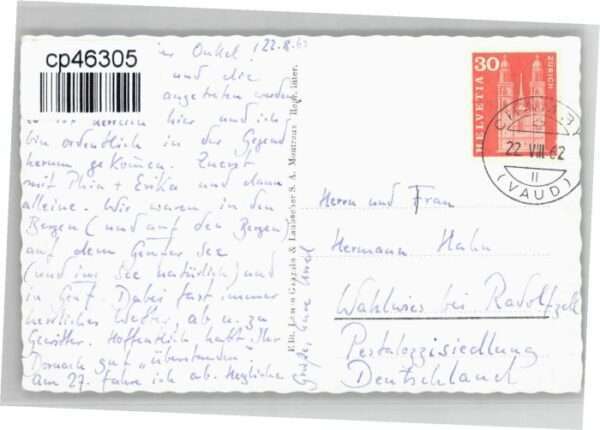 cp46305
Onkel! 22.8.62
und die
angetreten werden
ist herrlich hier und ich
bin ordentlich in der Gegend
herum gekommen. Zuerst
mit Thia + Erika und dann
alleine. Wir waren in den
Bergen (und auf den Bergen)
auf dem Genfer See
(und im See natürlich) und
in Genf. Dabei fast immer
herrliches Wetter, ab u. zu
Gewitter. Hoffentlich habt Ihr
Dornach gut "überstanden".
Am 27. fahre ich ab. Herzliche
Grüße, Eure
Edit. Louis
S. A. Montreux Repr. inter.
30
HELVETIA
ZÜRICH
22 VIII 62
11
(VAUD)
Herrn und Frau
Hermann Hahn
Wahlwies bei Radolfzell
Pestalozzisiedlung
Deutschland